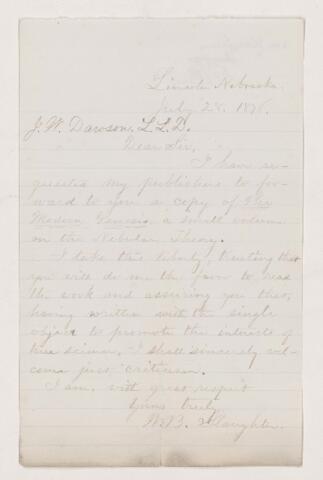 Lincoln Nebraska
July 28. 1876.
J. W. Dawson, L.L.D.
Dear Sir.
I have re-
quested my publishers to for-
ward to you a copy of The
Modern Genesis, a small volume
on the Nebular Theory.
I take this liberty, trusting that
you will do me the favor to read
the book and assuring you that,
having written with the single
object to promote the interests of
true science, I shall sincerely wel-
come just criticism.
I am, with great respect
Yours truly
W. B. Slaughter.